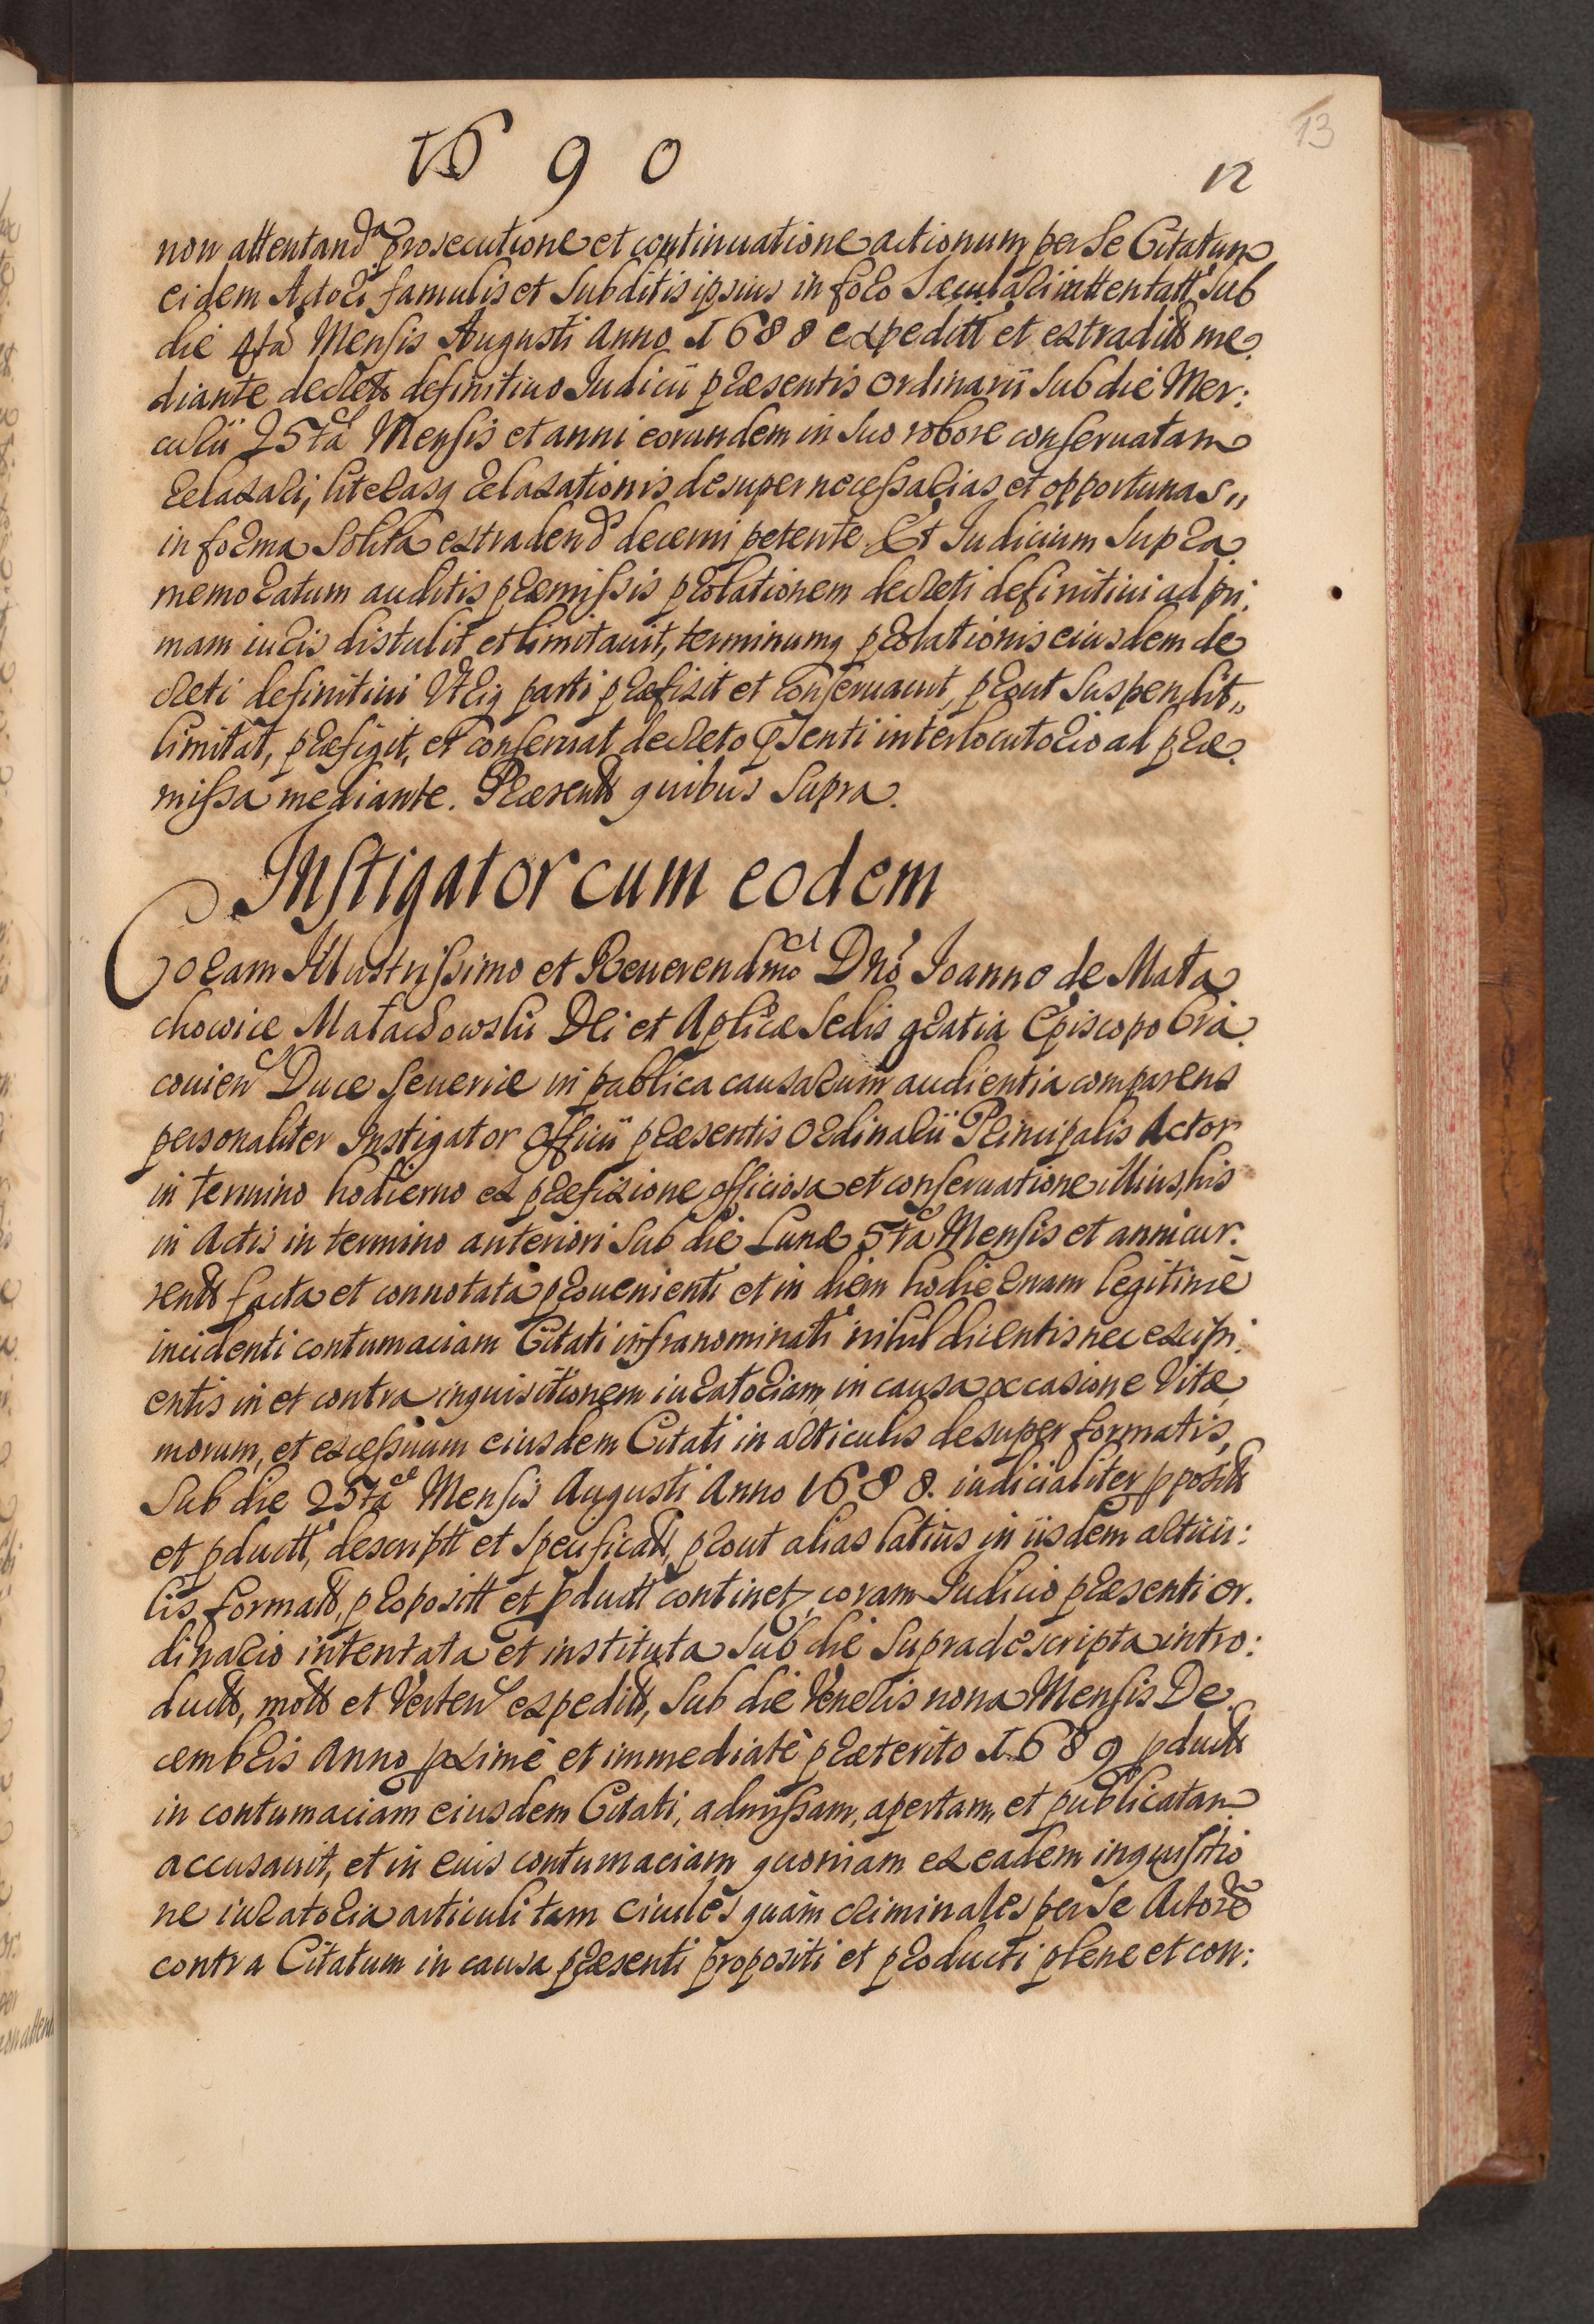 13
1690
12
non attentand. prosecutione et continuatione actionum per se Citatum
eidem Actori famulis et Subditis ipsius in foro Sæculari attentatt. Sub
die 4ta Mensis Augusti Anno 1688 expeditt et extradittt me.
diante decreto definitiuo Iudicii præsentis Ordinarii Sub die Mer:
curii 25ta Mensis et anni eorundem in suo robore conseruatam
relaxari, literasq relaxationis desuper necessarias et opportunas,,
in forma solita extradend decerni petente. Et Iudicium supra
memoratum auditis præmissis prolationem decreti definitiui ad pri.
mam iuris distulit et limitauit, terminumq prolationis eiusdem de
creti definitiui Vtriq parti præfixit et conseruauit, prout Suspendit,,
limitat, præfigit, et conseruat decreto pnti interlocutorio ad præ.
missa mediante. Præsentt quibus Supra.
Instigator cum eodem
Coram Illustrissimo et Reuerendmo Dno Ioanne de Mała
chowice Małachowski Dei et Aplicæ Sedis gratia Episcopo Cra.
couien Duce Seueriæ in publica causarum audientia comparens
personaliter Instigator Officii præsentis Ordinarii Principalis Actor
in termino hodierno ex præfixione officiosa et conseruatione illius, his
in Actis in termino anteriori Sub die Lunæ 5ta Mensis et anni cur:
rentt facta et connotata prouenienti et in diem hodiernam legitimè
incidenti contumaciam Citati infranominati nihil dicentis nec excipi:
entis in et contra inquisitionem iuratoriam, in causa occasione Vitæ,
morum, et excessuum eiusdem Citati in articulis desuper formatis,
Sub die 25ta Mensis Augusti Anno 1688. iudicialiter ppositt
et pductt, descriptt et Specificatt, prout alias latius in iisdem articu:
lis formatt, propositt et pductt continet, coram Iudicio præsenti or.
dinario intentata et instituta Sub die Supradescripta intro:
ductt, mott et Verten expeditt, Sub die Veneris nona Mensis De
cembris Anno pximè et immediatè præterito 1689 pductt
in contumaciam eiusdem Citati, admissam, apertam, et publicatam
accusauit, et in eius contumaciam quoniam ex eadem inquisitio
ne iuratoria articuli tam ciuiles quàm criminales per se Actorem
contra Citatum in causa præsenti propositi et producti plene et con: